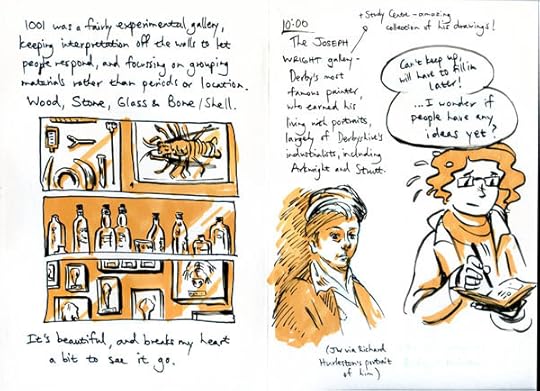 1001 was a fairly experimental gallery,
keeping interpretation off the walls to let
people respond, and focussing on grouping
materials rather than periods or location.
Wood, Stone, Glass & Bone/Shell.
It's beautiful, and breaks my heart
a bit to see it go.
10:00
+ Study Centre - amazing
collection of his drawings!
The JOSEPH
WRIGHT gallery -
Derby's most
famous painter,
who earned his
living w portraits,
largely of Derbyshire's
industrialists, including
Arkwright and Strutt.
Can't keep up,
will have to fill in
later!
...I wonder if
people have any
ideas yet?
(JW via Richard
Hurleston's portrait
of him)